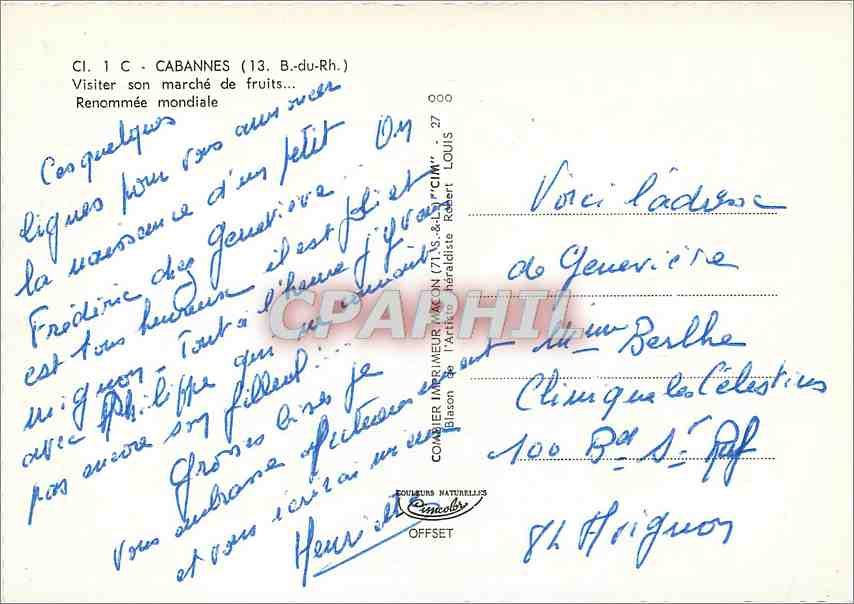 Cl. 1 C - CABANNES (13. B.-du-Rh.)
Visiter son marché de fruits...
Renommée mondiale
Ces quelques
lignes pour vous annoncer
la naissance d'un petit
Frédéric chez Geneviève. On
est tous heureux il est joli et
mignon - Tout à l'heure j'y vais
avec Philippe qui ne connait
pas encore son filleul...
Grosses bises je
vous embrasse affectueusement
et vous écrirai mieux
Henriette
COMBIER IMPRIMEUR MACON (71. S.-&-L.) "CIM" - 27 000
Blason de l'Artiste héraldiste Robert LOUIS
CPAPHIL
COULEURS NATURELLES
Cimcolor
OFFSET
Voici l'adresse
de Geneviève
Mme Berthe
Clinique les Célestins
100 Bd St Ruf
84 Avignon